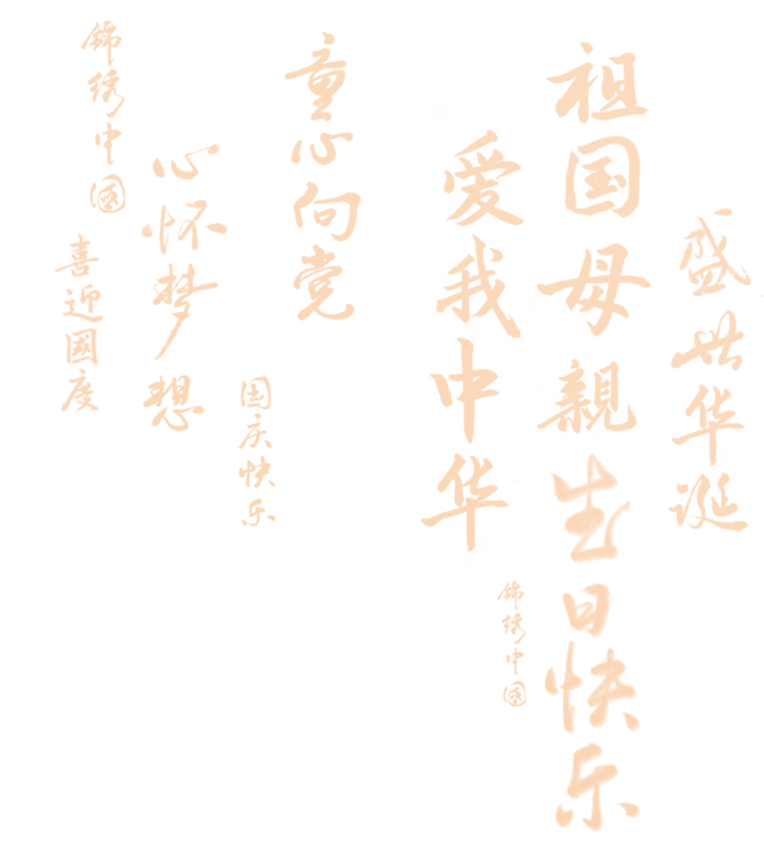 盛世华诞
祖国母親生日快乐
锦绣中國
爱我中华
童心向党
国庆快乐
心怀梦想
錦绣中國
喜迎國度